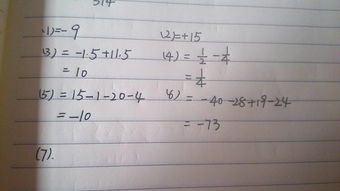 314
(1)=-9 (2)=+15
(3) = -1.5+11.5 (4) = 1/2 - 1/4
= 10 = 1/4
(5) = 15-1-20-4 (6) = -40-28+19-24
= -10 = -73
(7).